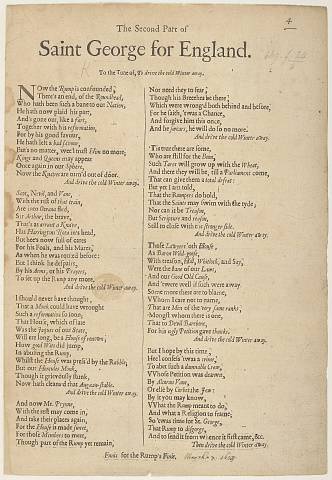 4
The Second Part of
Saint George for England.
To the Tune of, To drive the cold Winter away.
Now the Rump is confounded,
There's an end of the Roundhead,
Who hath been such a bane to our Nation,
He hath now plaid his part,
And's gone out like a fart,
Together with his reformation,
For by his good favour,
He hath left a bad savour,
But's no matter, wee'l trust him no more;
Kings and Queens may appear
Once again in our Sphere,
Now the Knaves are turn'd out of door.
And drive the cold Winter away.
Scot, Nevil, and Vane,
With the rest of that train,
Are into Oceana fled,
Sir Arthur, the brave,
That's as arrant a Knave,
Has Harringtons Rota in's head;
But hee's now full of cares
For his Foals, and his Mares,
As when he was routed before:
But I think he despairs,
By his Arms, or his Prayers,
To set up the Rump any more,
And drive the cold Winter away.
I should never have thought,
That a Monk could have wrought
Such a reformation so soon,
That House, which of late
Was the Jaques of our State,
Will ere long, be a House of renown;
How good Wits did jump,
In abusing the Rump,
Whilst the House was prest'd by the Rabble,
But our Hercules Monk,
Though it grievously stunk,
Now hath cleans'd that Augaean-stable.
And drive the cold Winter away.
And now Mr. Prynne,
With the rest may come in,
And take their places again,
For the House is made sweet,
For those Members to meet,
Though part of the Rump yet remain,
Nor need they to fear,
Though his Breeches be there,
Which were wrong'd both behind and before,
For he saith, 'twas a Chance,
And forgive him this once,
And he swears, he will do so no more.
And drive the cold Winter away.
'Tis true there are some,
Who are still for the Bum,
Such Tares will grow up with the Wheat,
And there they will be, till a Parliament come,
That can give them a total defeat:
But yet I am told,
That the Rumpers do hold,
That the Saints may swim with the tyde;
Nor can it be Treason,
But Scripture and reason,
Still to close with the stronger side.
And drive the cold Winter away.
Those Lawyers o'th House,
As Baron Wild-goose,
With treason, Hill, Whitlock, and Say,
Were the bane of our Laws,
And our Good Old Cause,
And 'twere well if such were away.
Some more there are to blame,
VVhom I care not to name,
That are Men of the very same ranks;
'Mongst whom there is one,
That to Devil Barebone,
For his ugly Petition gave thanks.
And drive the cold Winter away.
But I hope by this time,
Hee'l confess 'twas a crime,
To abet such a damnable Crew,
VVhose Petition was drawn,
By Alcoran Vane,
Or else by Corbet the Jew:
By it you may know,
VVhat the Rump meant to do,
And what a Religion to frame;
So 'twas time for St. George,
That Rump to disgorge,
And to send it from whence it first came, &c.
Then drive the cold Winter away.
Finis for the Rump's Foise,
March 7. 1659